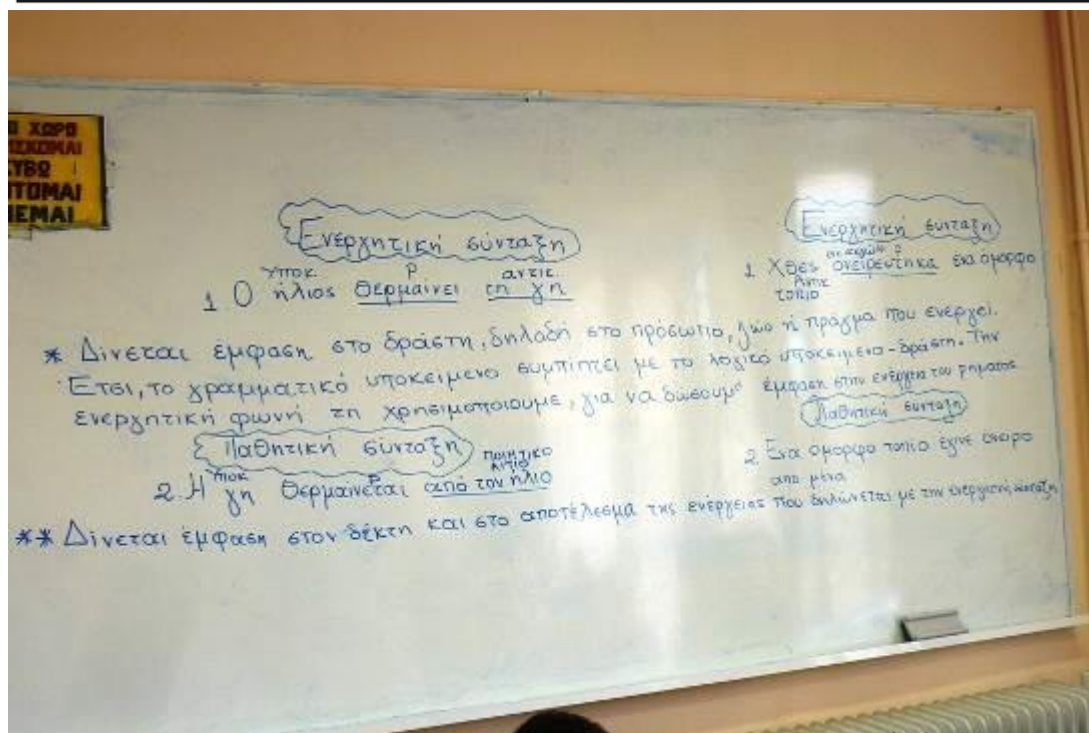 Ο ΧΩΡΟ
ΣΚΟΜΑΙ
ΥΒΩ
ΠΤΟΜΑΙ
ΝΕΜΑΙ
Ενεργητική σύνταξη
Υποκ. Ρ αντικ.
1 Ο ήλιος θερμαίνει τη γη
* Δίνεται έμφαση στο δράστη, δηλαδή στο πρόσωπο, ζώο ή πράγμα που ενεργεί.
Έτσι, το γραμματικό υποκείμενο συμπίπτει με το λογικό υποκείμενο-δράστη. Την
ενεργητική φωνή τη χρησιμοποιουμε, για να δώσουμε έμφαση στην ενέργεια του ρήματος
Παθητική σύνταξη
ποιητικο
αιτιο
Υποκ Ρ
2. Η γη θερμαινεται από τον ήλιο
** Δίνεται έμφαση στον δέκτη και στο αποτέλεσμα της ενέργειας που δηλώνεται με την ενεργητική σύνταξη
Ενεργητική συνταξη
ρ
1 Χθες ονειρευτηκα ενα ομορφο
Αντικ
τοπιο
Παθητική συνταξη
2 Ενα ομορφο τοπιο έγινε ονειρο
απο μένα